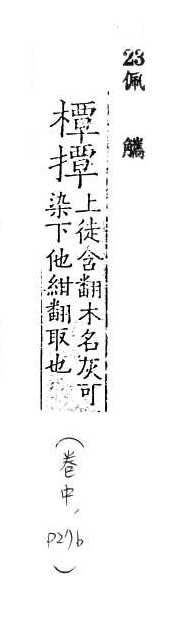 23佩觿
橝撢上徒含翻木名灰可
染下他紺翻取也
(卷中,
P27b)